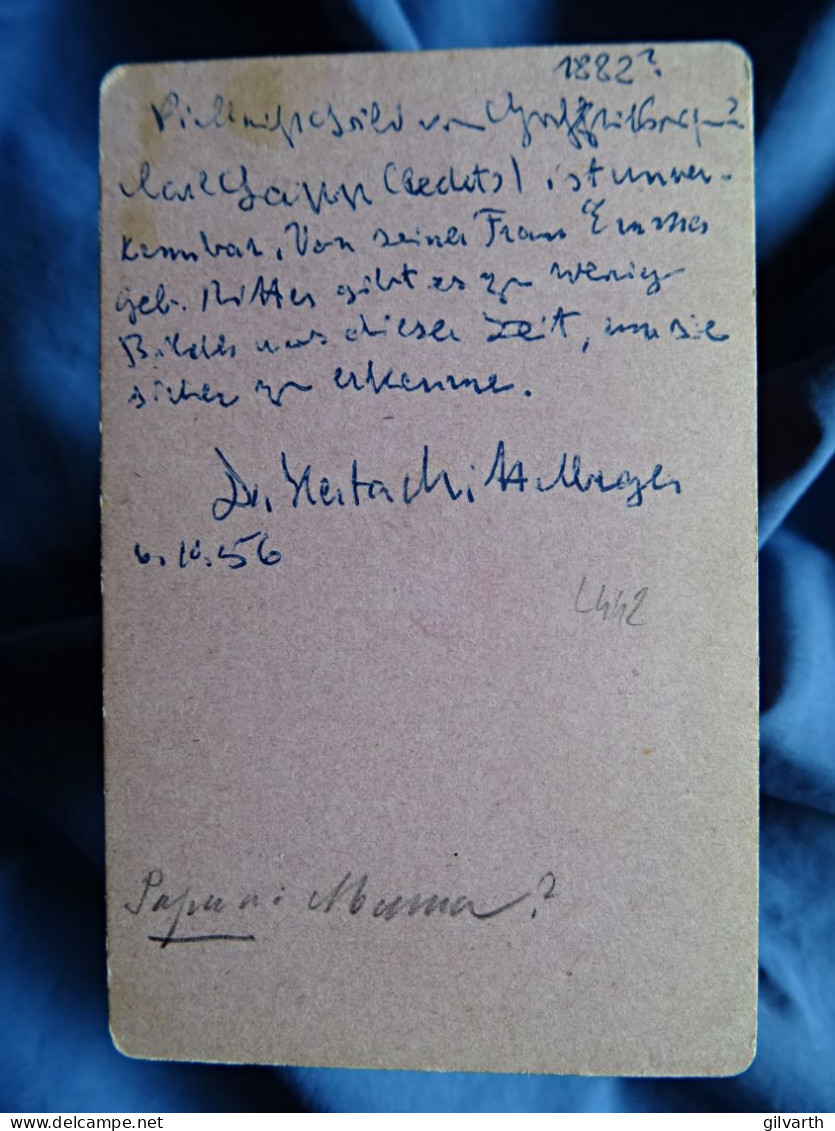 1882?
Carl Sapper (Rechts) ist unver-
kennbar, Von seiner Frau
geb. Ritter gibt es zu wenig
Bilder aus dieser Zeit, um sie
sicher zu erkennen.
Dr.
6.10.56
L442
Papa u: Mama?
delcampe.net
gilvarth